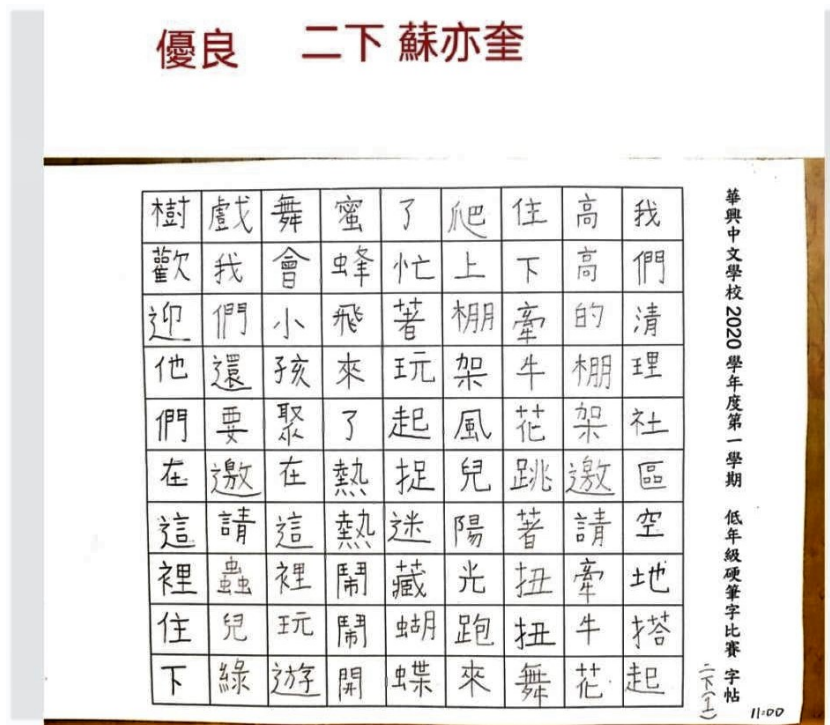 優良 二下 蘇亦奎
華興中文學校 2020 學年度第一學期 低年級硬筆字比賽 字帖
二下(1)
11:00
我們清理社區空地搭起
高高的棚架邀請牽牛花
住下牽牛花跳著扭扭舞
爬上棚架風兒陽光跑來
了忙著玩起捉迷藏蝴蝶
蜜蜂飛來了熱熱鬧鬧開
舞會小孩聚在這裡玩遊
戲我們還要邀請蟲兒綠
樹歡迎他們在這裡住下